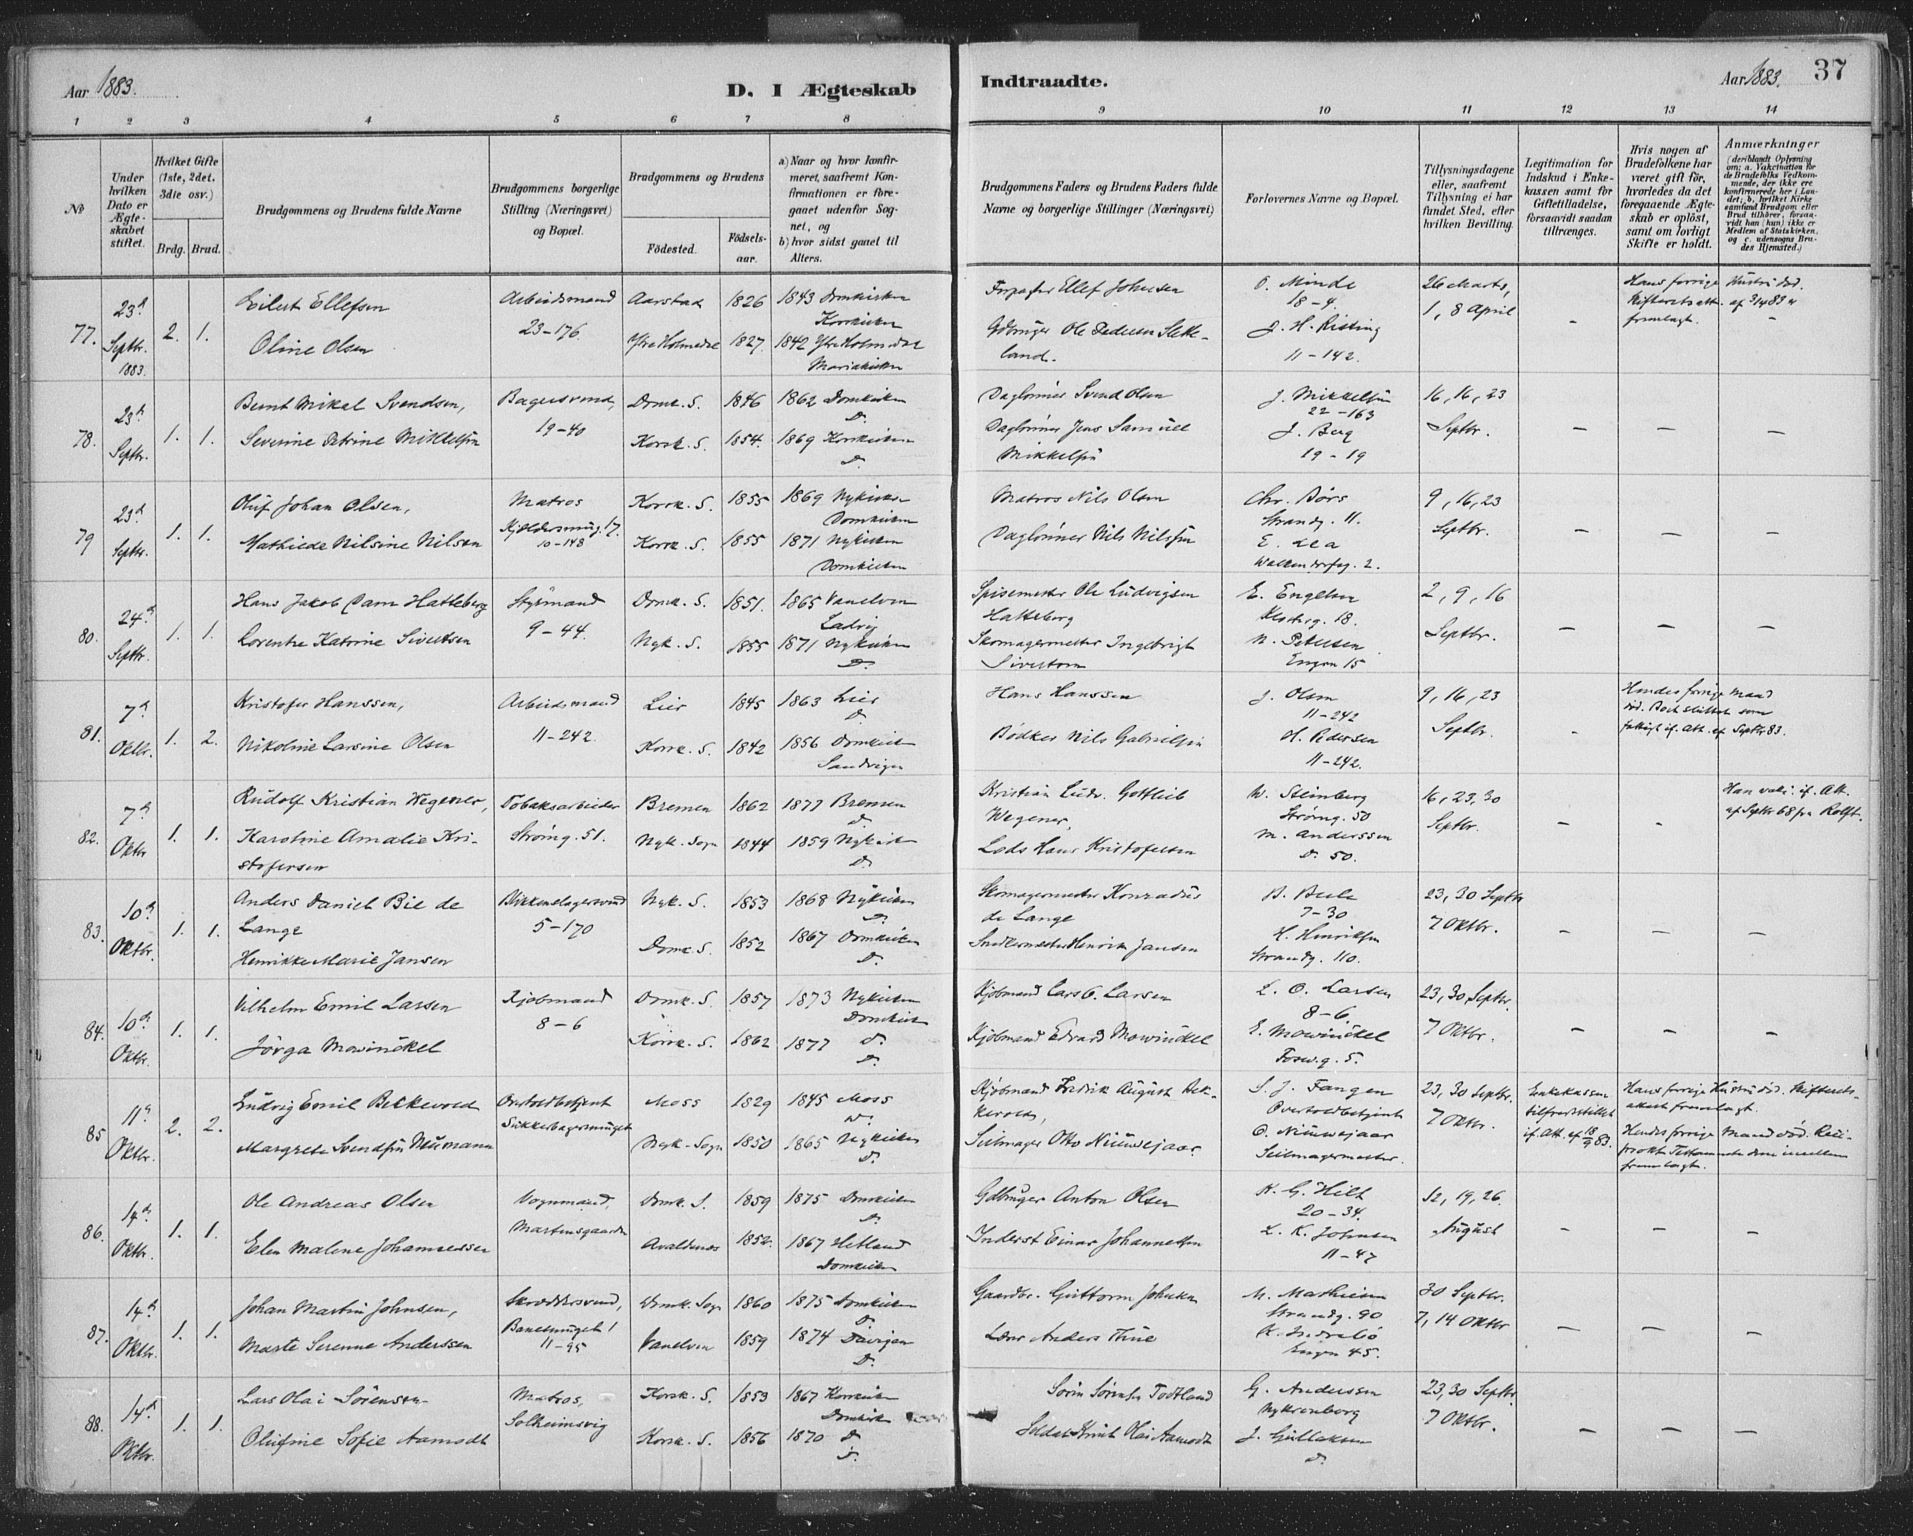 Aar 1883.
D. I Ægteskab Indtraadte.
Aar 1883. 37
1 2 3 4 5 6 7 8 9 10 11 12 13 14
No
Under hvilken Dato er Ægteskabet stiftet.
Hvilket Gifte (1ste, 2det, 3die osv.)
Brdg. Brud.
Brudgommens og Brudens fulde Navne
Brudgommens borgerlige Stilling (Næringsvei) og Bopæl.
Brudgommens og Brudens
Fødested. Fødselsaar.
a) Naar og hvor konfirmeret, saafremt Konfirmationen er foregaaet udenfor Sognet, og
b) hvor sidst gaaet til Alters.
Brudgommens Faders og Brudens Faders fulde Navne og borgerlige Stillinger (Næringsvei)
Forlovernes Navne og Bopæl.
Tillysningsdagene eller, saafremt Tillysning ei har fundet Sted, efter hvilken Bevilling.
Legitimation for Indskud i Enkekassen samt for Giftetilladelse, forsaavidt saadan tiltrænges.
Hvis nogen af Brudefolkene har været gift før, hvorledes da det foregaaende Ægteskab er opløst, samt om lovligt Skifte er holdt.
Anmærkninger
(deriblandt Oplysning om: a. Vakcination for de Brudefolks Vedkommende, der ikke ere konfirmerede her i Landet; b. hvilket Kirkesamfund Brudgom eller Brud tilhører, forsaavidt han (hun) ikke er Medlem af Statskirken, og c. udensogns Brudes Hjemsted.)
77. 23d Septbr. 1883. 2. 1.
Eilert Ellefsen Arbeidsmand 23-176. Aarstad 1826 1843 Domkirken Korskirken
Oline Olsen Ytre Holmedal 1827. 1842 Ytre Holmedal Mariakirken
Ellef Johnsen
Gdbruger Ole Pedersen
O. Minde 18-4.
J. H. Risting 11-142.
26 Marts, 1, 8 April
Hans forrige Hustru død.
78. 23d Septbr. 1. 1.
Bernt Mikal Svendsen, Bagersvend, 19-40 Domk. S. 1846 1862 Domkirken D.
Severine Petrine Mikkelsen Korsk. S. 1854. 1869 Korskirken D.
Daglønner Svend Olsen
Daglønner Jens Samuel Mikkelsen
J. Mikkelsen 22-163
J. Berg 19-19
16, 16, 23 Septbr.
79 23d Septbr. 1. 1.
Oluf Johan Olsen, Matros 10-148 Korsk. S. 1855 1869 Nykirken Domkirken
Mathilde Nilsine Nilsen Korsk. S. 1855 1871 Nykirken Domkirken
Matros Nils Olsen
Daglønner Nils Nilsen
Chr. Børs Strandg. 11.
E. Lea Walkendorfsg. 2.
9, 16, 23 Septbr.
80. 24d Septbr. 1. 1.
Hans Jakob Dam Hatteberg Styrmand 9-44. Domk. S. 1851. 1865 Vanelven Ladvig
Lorentze Katrine Sivertsen Nyk. S. 1855 1871 Nykirken D.
Spisemester Ole Ludvigsen Hatteberg
Skomagermester Ingebrigt Sivertsen
E. Engelsen 18.
N. Petersen Engen 15
2, 9, 16 Septbr.
81. 7d Oktbr. 1. 2.
Kristofer Hanssen, Arbeidsmand 11-242. Lier 1845 1863 Lier D.
Nikoline Larsine Olsen Korsk. S. 1842 1856 Domkirk Sandvigen
Hans Hanssen
Bødker Nils Gabrielsen
J. Olsen 11-242
H. Pedersen 11-242.
9, 16, 23 Septbr.
Hendes forrige Mand død.
82. 7d Oktbr 1. 1.
Rudolf Kristian Wegener, Tobaksarbeider Strømg. 51. Bremen 1862 1877 Bremen D.
Karoline Amalie Kristofersen Nyk. Sogn 1844 1859 Nykirk D.
Kristian Ludv. Gottlieb Wegener,
Lods Hans Kristofersen
W. Steinberg Strømg. 50
M. Anderssen D. 50.
16, 23, 30 Septbr.
83. 10d Oktbr. 1. 1.
Anders Daniel Bie de Lange Blikkenslagersvend 5-170 Nyk. S. 1853 1868 Nykirken D.
Henrikke Marie Jansen Domk. S. 1852 1867 Domkirken D.
Skomagermester Konradus de Lange
Snedkermester Henrik Jansen
7-30
H. Henriksen Strandg. 110.
23, 30 Septbr 7 Oktbr.
84. 10d Oktbr. 1. 1.
Vilhelm Emil Larsen Kjøbmand 8-6 Domk. S. 1857 1873 Nykirken Domkirk D.
Jørga Mowinckel Korsk. S. 1862 1877 D.
Kjøbmand Lars O. Larsen
Kjøbmand Edvard Mowinckel
L. O. Larsen 8-6.
E. Mowinckel Foswg. 5.
23, 30 Septbr. 7 Oktbr.
85 11d Oktbr. 2. 2.
Ludvig Emil Bekkevold Overtoldbetjent Moss 1829 1845 Moss
Margrete Svendsen Neumann Nyk. Sogn 1850 1865 Nykirken D.
Kjøbmand Fredrik August Bekkevold,
Seilmager Otto Nieuwejaar
S. J. Fangen Overtoldbetjent
O. Nieuwejaar Seilmagermester.
23, 30 Septbr. 7 Oktbr.
Enkekassen tilfredsstillet if. Att. af 18/9 83.
Hans forrige Hustru død. Skifteattest fremlagt.
Hendes forrige Mand død.
86. 14d Oktbr. 1. 1.
Ole Andreas Olsen Vognmand, Martinsgaarden Domk. S. 1859 1875 Domkirken D.
Elen Malene Johannessen Avaldsnes 1852. 1867 Hetland Domkirken
Gdbruger Anton Olsen
Inderst Einar Johannessen
K. G. Hilt 20-34.
L. K. Johnsen 11-47
12, 19, 26 August
87. 14d Oktbr. 1. 1.
Johan Martin Johnsen, Skræddersvend, 11-95 Domk. Sogn 1860 1875 Domkirken D.
Marte Serenne Anderssen Vanelven 1859 1874 D.
Gaardbr. Guttorm Johnsen
Anders Thue
M. Mathiesen Strandg. 90
Engen 45.
30 Septbr. 7, 14 Oktbr
88. 14d Oktbr. 1. 1.
Lars Olai Sørensen Matros, Solheimsvig Korsk. S. 1853 1867 Korskirken Domkirk
Olufine Sofie Aamodt Korsk. S. 1856 1870 D. D.
Søren Sørensen Todtland
Soldat Olai Aamodt
G. Anderssen Nykronborg
J. Gullaksen D.
23, 30 Septbr. 7 Oktbr.